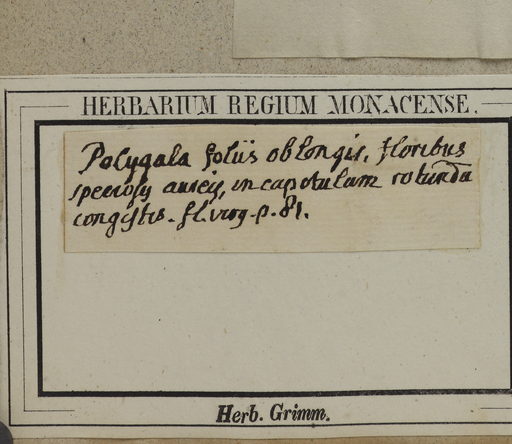 HERBARIUM REGIUM MONACENSE.
Polygala foliis oblongis, floribus
speciosis aureis, in capitulum rotunda
congestis. fl. virg. p. 81.
Herb. Grimm.